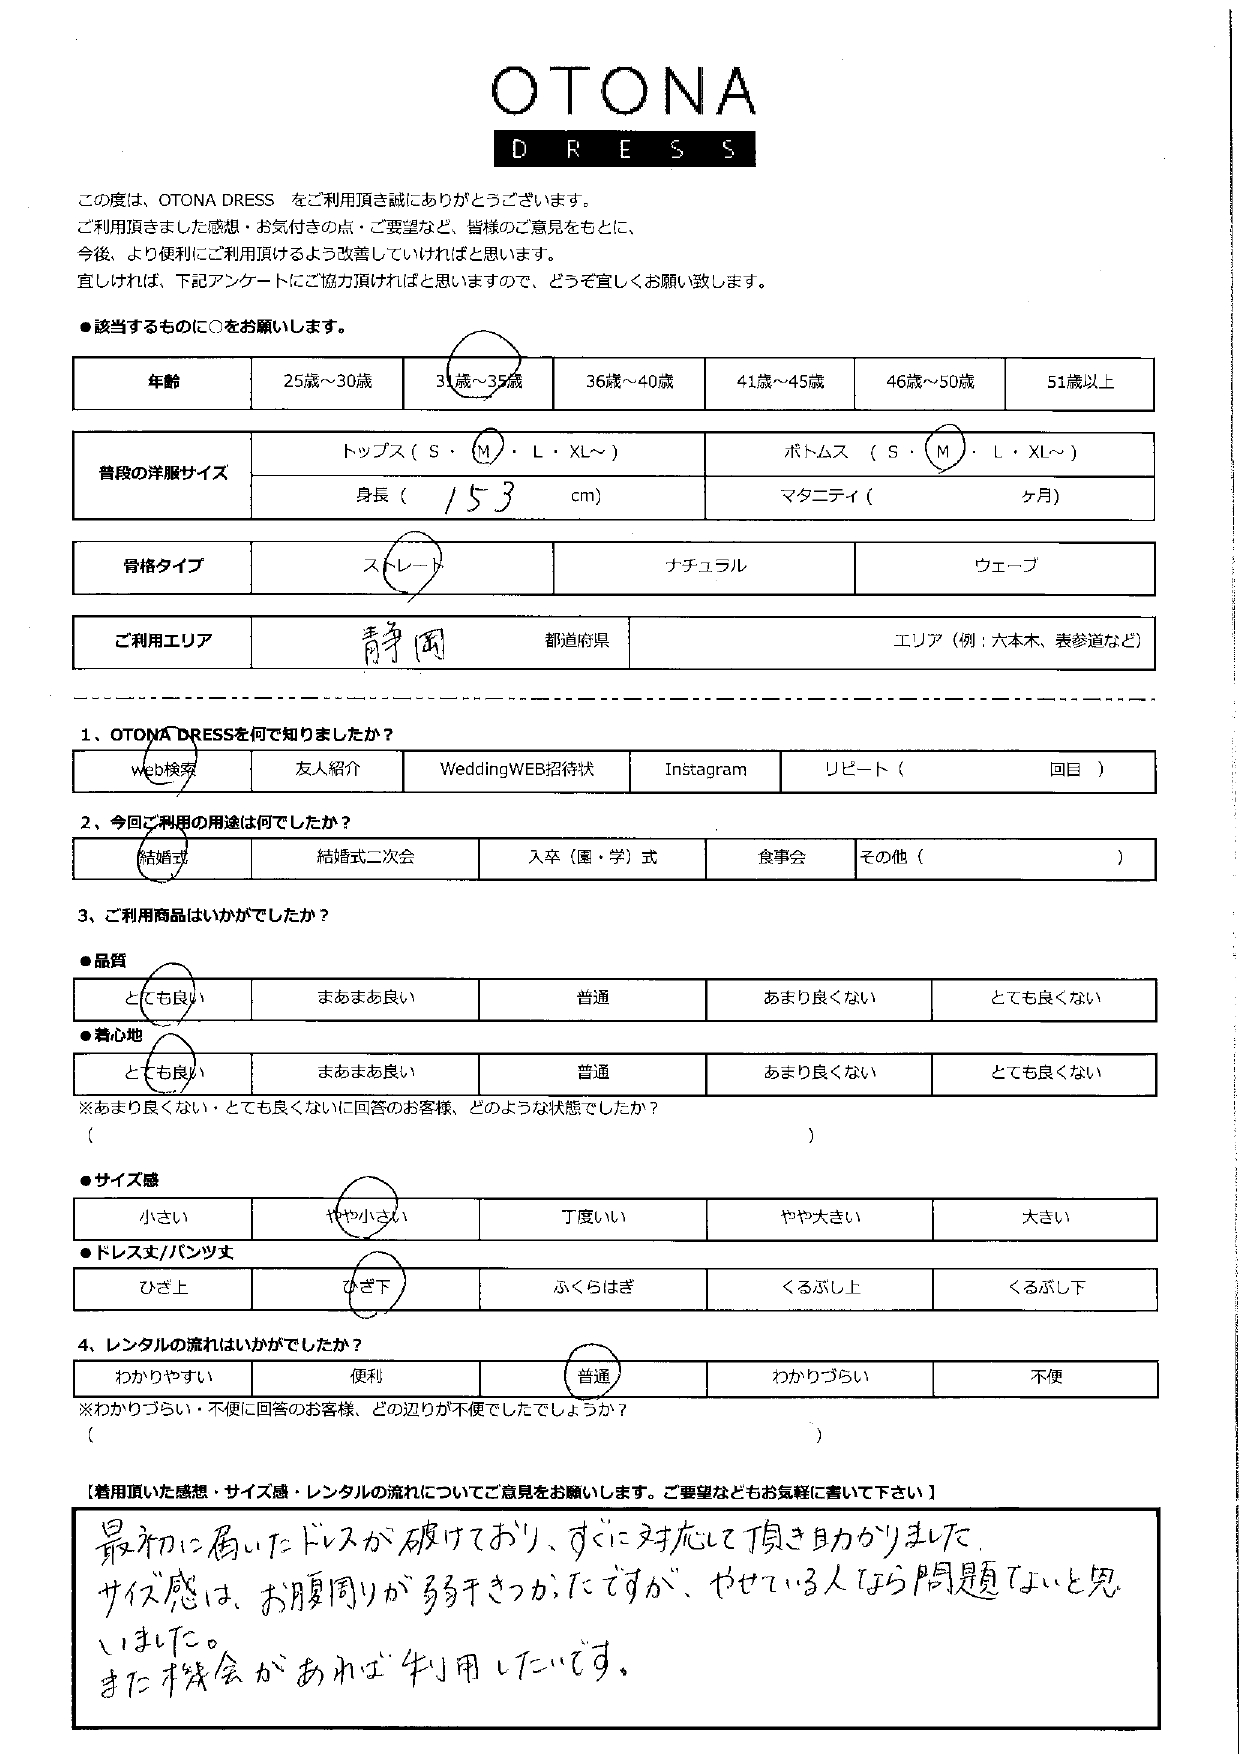 OTONA
DRESS
この度は、OTONA DRESS をご利用頂き誠にありがとうございます。
ご利用頂きました感想・お気付きの点・ご要望など、皆様のご意見をもとに、
今後、より便利にご利用頂けるよう改善していければと思います。
宜しければ、下記アンケートにご協力頂ければと思いますので、どうぞ宜しくお願い致します。
●該当するものに○をお願いします。
年齢 25歳～30歳 31歳～35歳 36歳～40歳 41歳～45歳 46歳～50歳 51歳以上
普段の洋服サイズ トップス ( S ・ M ・ L ・ XL～ ) ボトムス ( S ・ M ・ L ・ XL～ )
身長 ( 153 cm) マタニティ ( ヶ月)
骨格タイプ ストレート ナチュラル ウェーブ
ご利用エリア 静岡 都道府県 エリア（例：六本木、表参道など）
1、OTONA DRESSを何で知りましたか？
web検索 友人紹介 WeddingWEB招待状 Instagram リピート ( 回目 )
2、今回ご利用の用途は何でしたか？
結婚式 結婚式二次会 入卒（園・学）式 食事会 その他 ( )
3、ご利用商品はいかがでしたか？
●品質
とても良い まあまあ良い 普通 あまり良くない とても良くない
●着心地
とても良い まあまあ良い 普通 あまり良くない とても良くない
※あまり良くない・とても良くないに回答のお客様、どのような状態でしたか？
( )
●サイズ感
小さい やや小さい 丁度いい やや大きい 大きい
●ドレス丈/パンツ丈
ひざ上 ひざ下 ふくらはぎ くるぶし上 くるぶし下
4、レンタルの流れはいかがでしたか？
わかりやすい 便利 普通 わかりづらい 不便
※わかりづらい・不便に回答のお客様、どの辺りが不便でしたでしょうか？
( )
【着用頂いた感想・サイズ感・レンタルの流れについてご意見をお願いします。ご要望などもお気軽に書いて下さい】
最初に届いたドレスが破けており、すぐに対応して頂き助かりました.
サイズ感は、お腹周りが若干きつかったですが、やせている人なら問題ないと思
いました。
また機会があれば利用したいです。